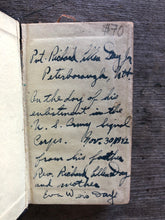 $70
Pvt. Richard Allen Day Jr.
Peterborough, N.H.
On the day of his
enlistment in the
U. S. Army Signal
Corps. Nov. 30, 1942
from his father
Rev. Richard Allen Day
and mother
Eva Day